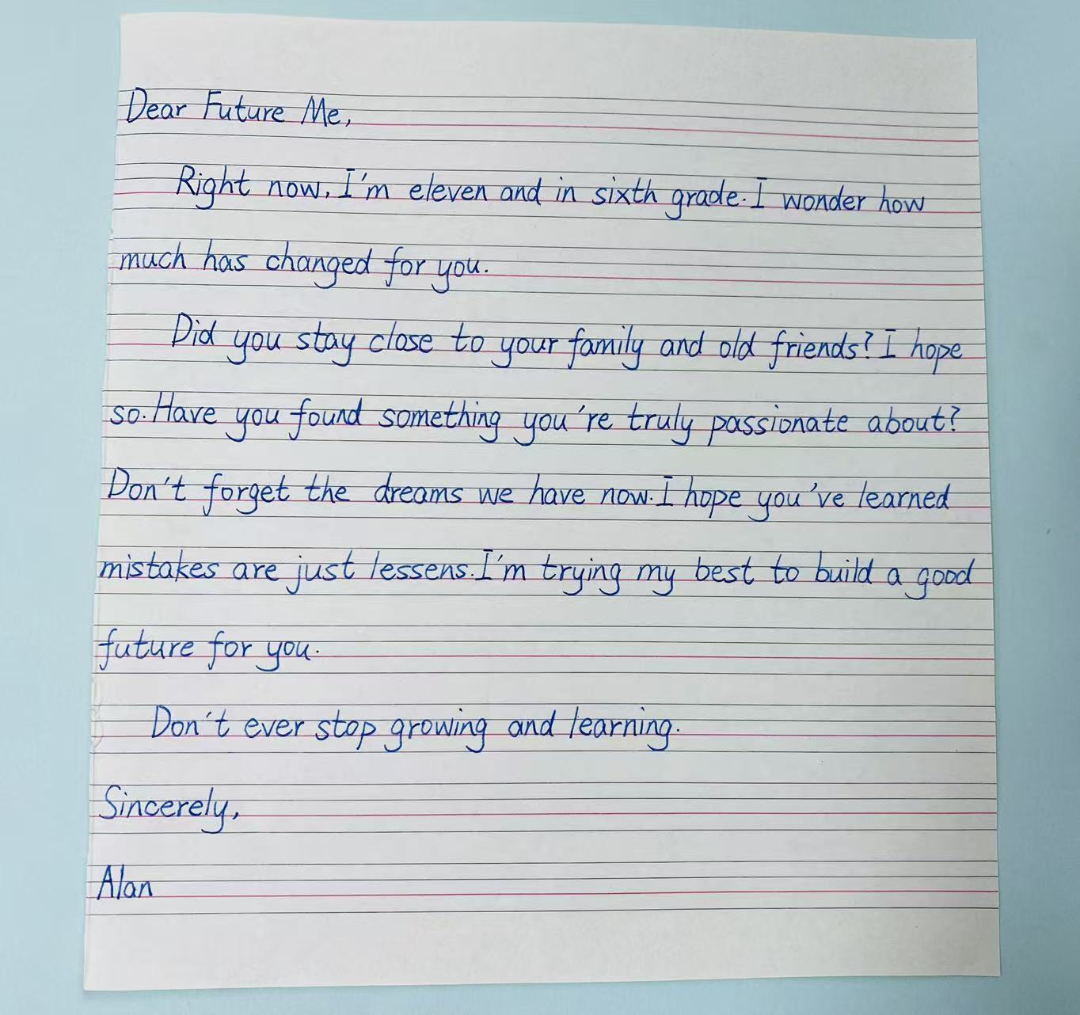 Dear Future Me,
Right now, I'm eleven and in sixth grade. I wonder how
much has changed for you.
Did you stay close to your family and old friends? I hope
so. Have you found something you're truly passionate about?
Don't forget the dreams we have now. I hope you've learned
mistakes are just lessens. I'm trying my best to build a good
future for you.
Don't ever stop growing and learning.
Sincerely,
Alan